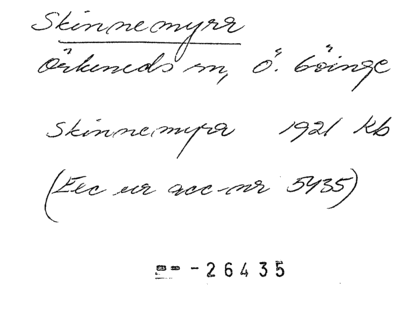 Skinnemyra
Örkeneds sn, Ö. Göinge
Skinnemyra 1921 kb
(Exc ur acc-nr 5435)
-26435